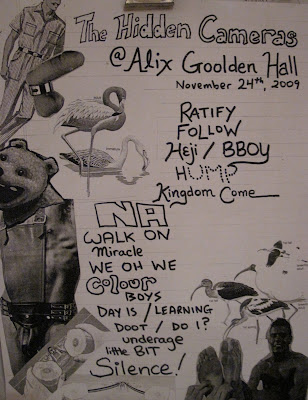 The Hidden Cameras
@ Alix Goolden Hall
November 24th, 2009
RATIFY
FOLLOW
Heji / BBOY
HUMP
Kingdom Come
NA
WALK ON
Miracle
WE OH WE
Colour
BOYS
DAY IS / LEARNING
DOOT / DO I?
underage
little BIT
Silence!